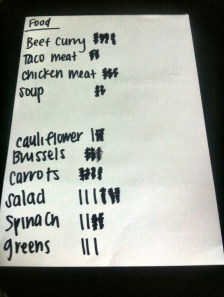 Food
Beef Curry
Taco meat
Chicken meat
Soup
cauliflower |
Brussels
Carrots
Salad |||
Spinach ||
greens |||